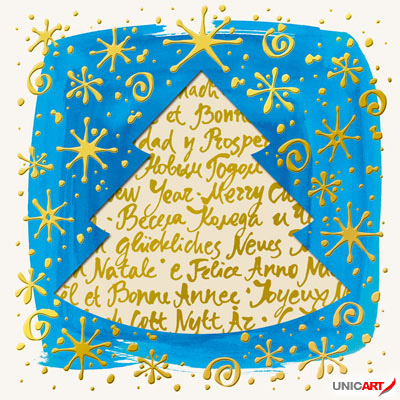 et Bonne
dad y Prosper
Новим Годом
ew Year · Merry
· Весела Коледа и
glückliches Neues
Natale · e Felice Anno Nu
el et Bonne Annee · Joyeux
Gott Nytt År ·
UNICART